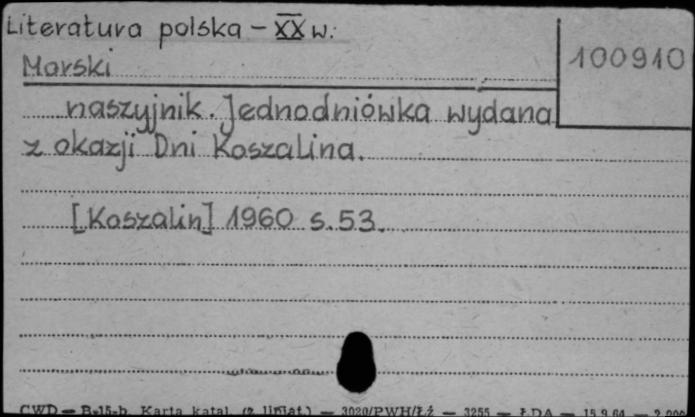 Literatura polska – XX w.
Morski
100910
naszyjnik. Jednodniówka wydana
z okazji Dni Koszalina.
[Koszalin] 1960 s. 53.
CWD — B-15-b. Karta katal. (z liniat.) — 3020/PWH/Łź — 3255 — ŁDA — 15.9.64 — 2.000